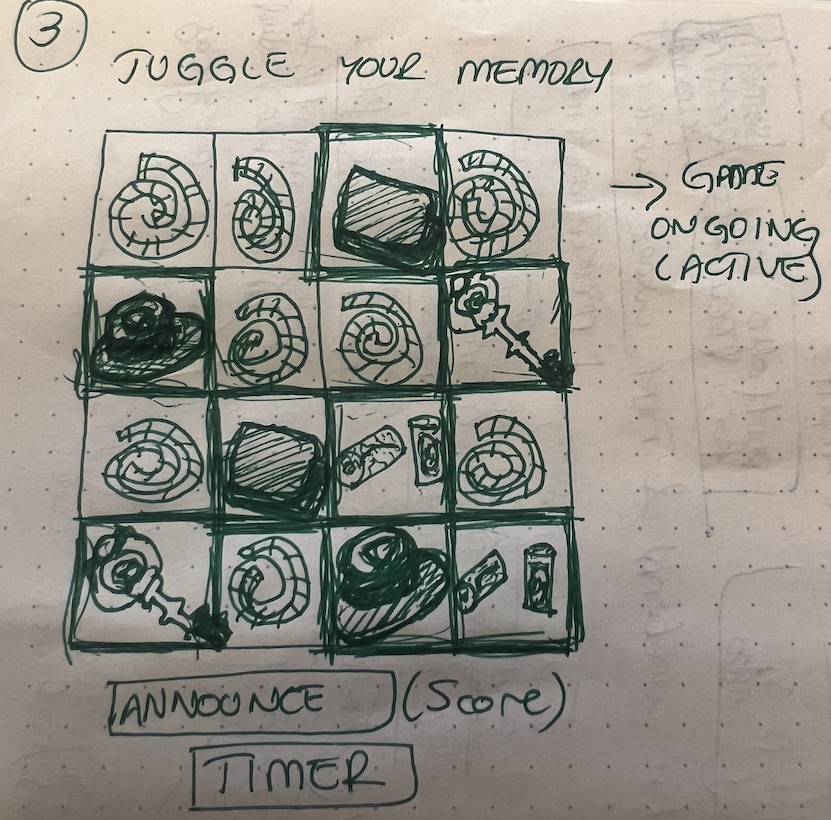 3
JUGGLE YOUR MEMORY
→ GAME
ONGOING
(ACTIVE)
ANNOUNCE (Score)
TIMER